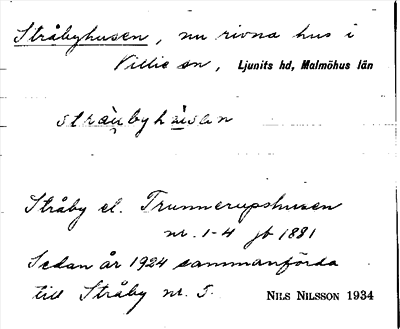 Stråbyhusen, nu rivna hus i
Villie sn, Ljunits hd, Malmöhus län
Stråby el. Trunnerupshusen
nr. 1-4 jb 1881
Sedan år 1924 sammanförda
till Stråby nr. 5. NILS NILSSON 1934